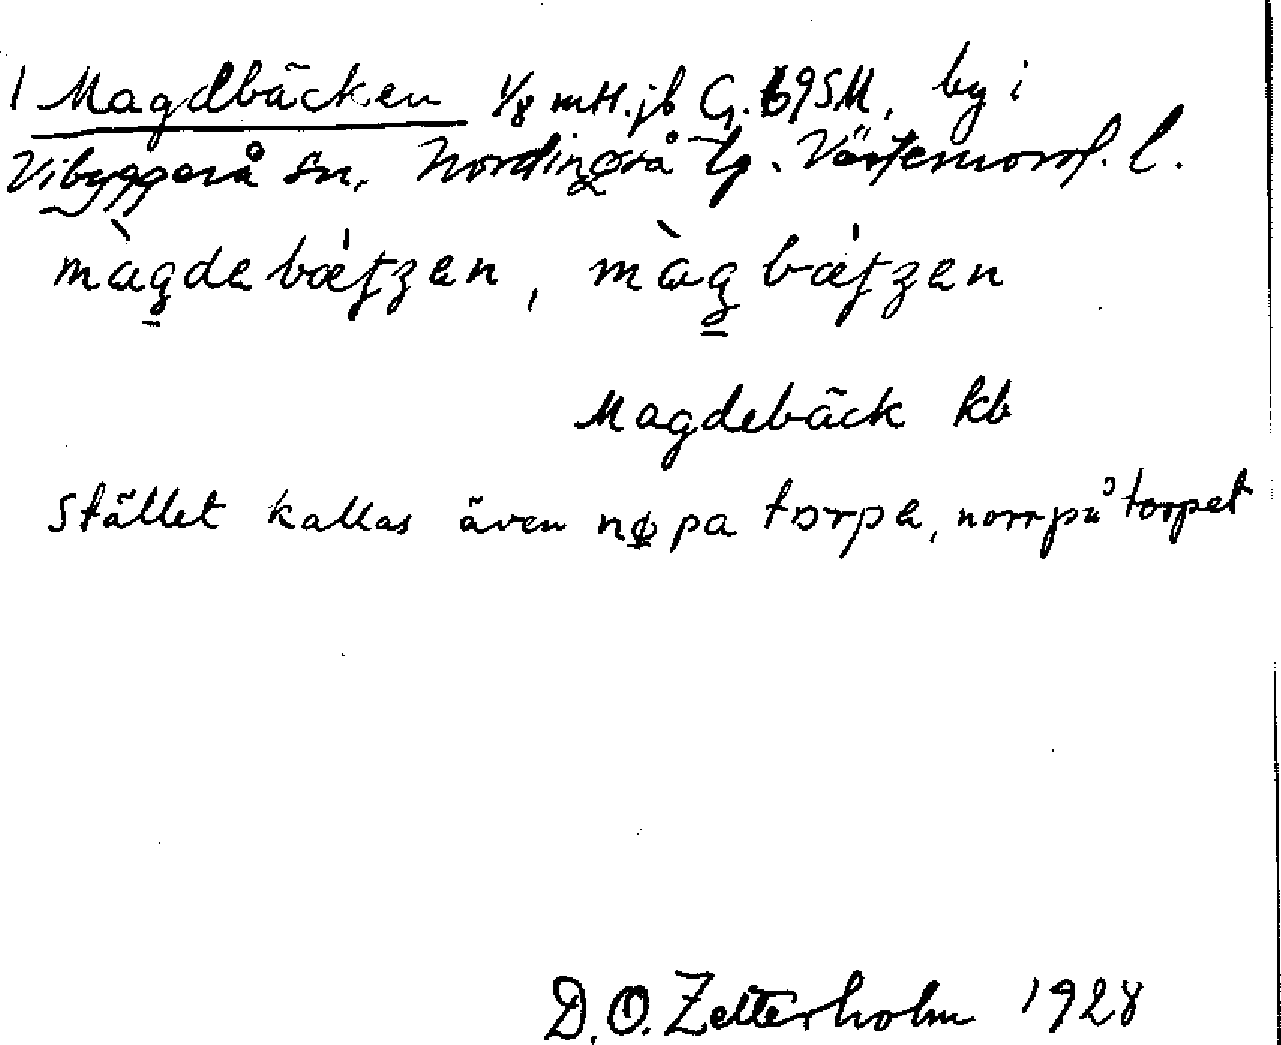 1 Magdbäcken 1/8 mtl. jb G. 695M, by i
Vibyggerå sn, Nordingrå tg. Västernorrl. l.
màgdebæ̀tzen, màgbæ̀tzen
Magdebäck kb
Stället kallas även nø pa torpe, norrpå torpet
D. O. Zetterholm 1928